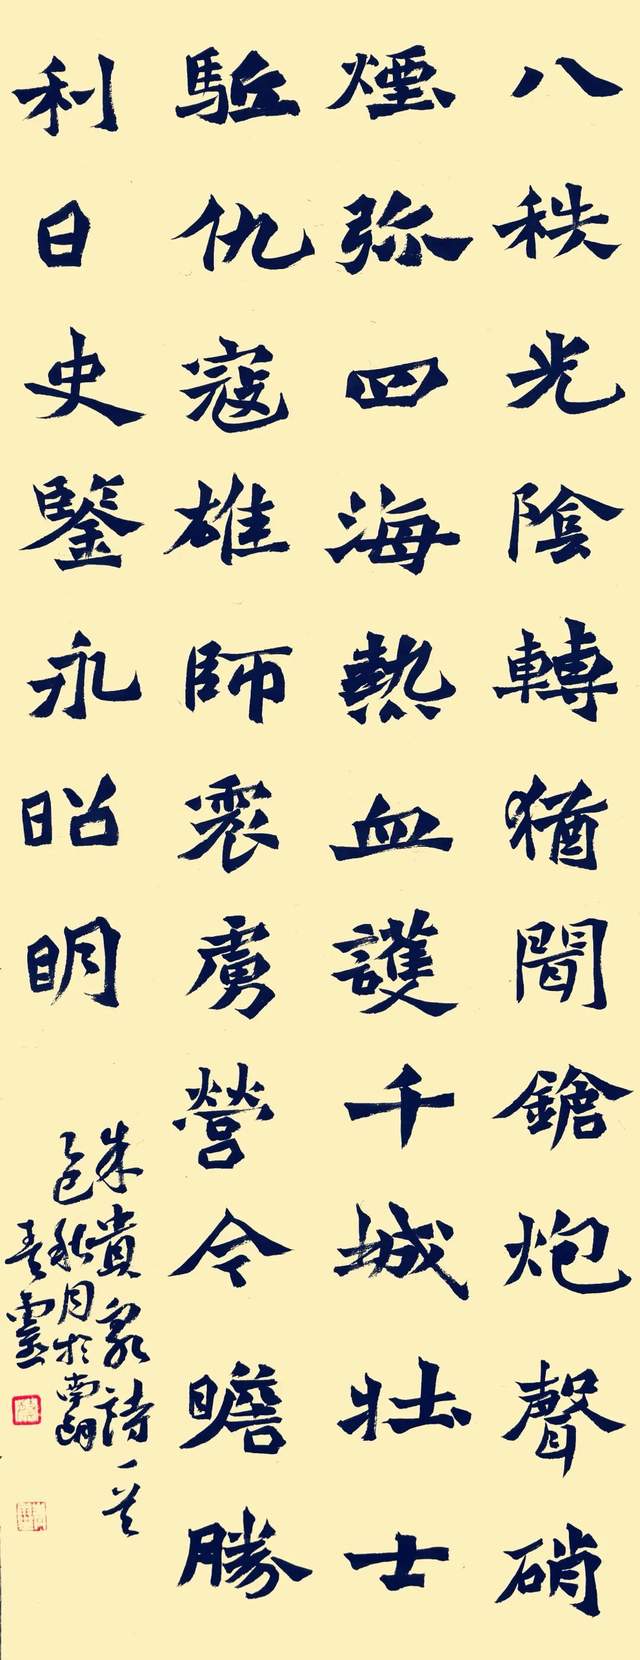 八秩光陰轉猶聞鎗炮聲硝
煙弥四海熱血護千城壯士
駈仇寇雄師震虜營令瞻勝
利日史鑒永昭明
朱貴泉詩一首
乙巳秋月於南明